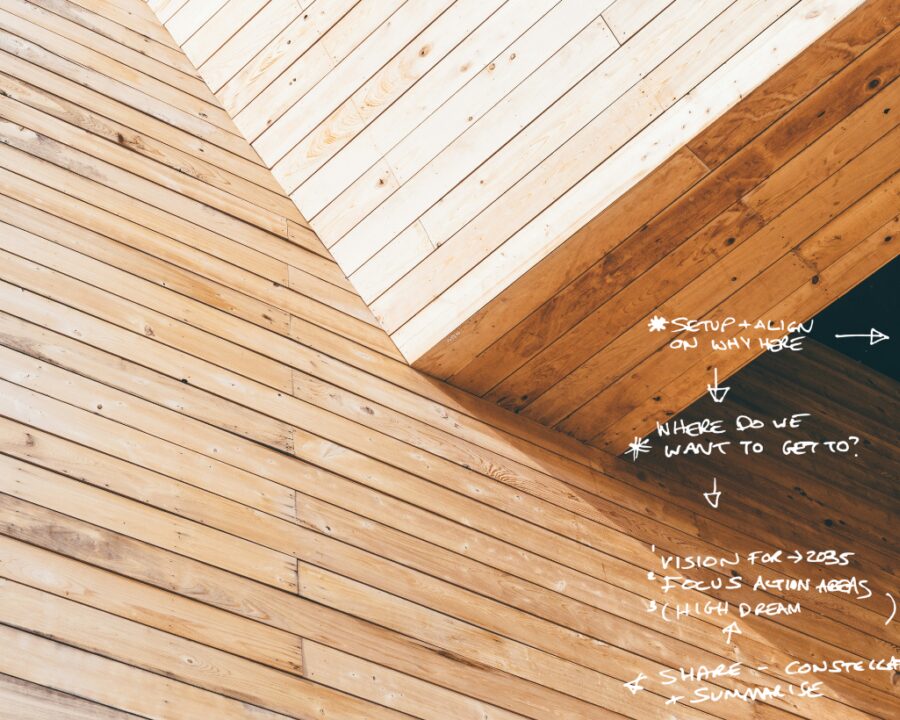 * SETUP + ALIGN →
ON WHY HERE
↓
WHERE DO WE
* WANT TO GET TO?
↓
1 VISION FOR → 2035
2 FOCUS ACTION AREAS
3 (HIGH DREAM )
↑
← SHARE - CONSTELLA
+ SUMMARISE